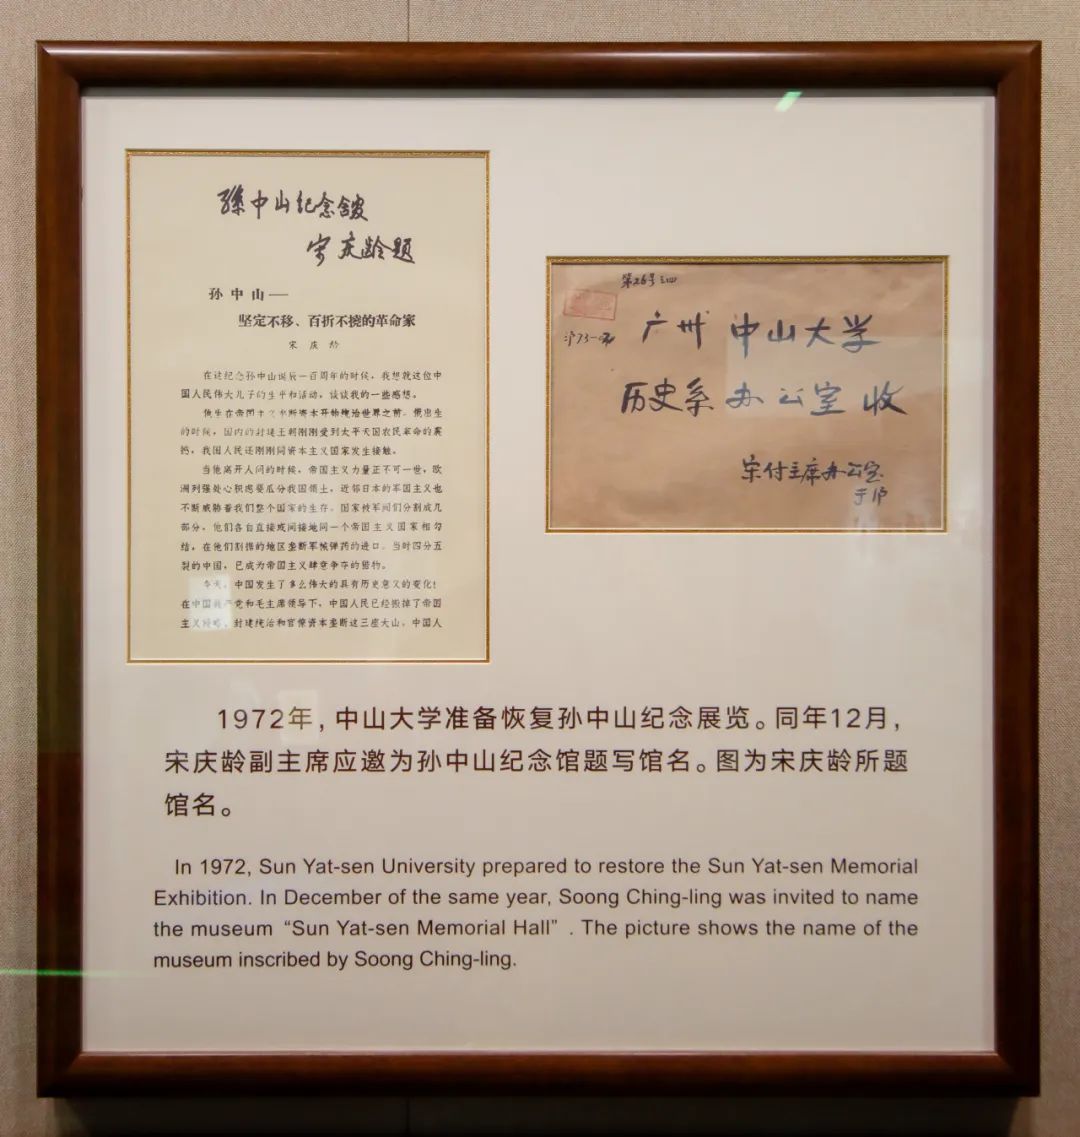 孙中山纪念馆
宋庆龄题
孙中山——
坚定不移、百折不挠的革命家
宋庆龄
在这纪念孙中山诞辰一百周年的时候，我想就这位中
国人民伟大儿子的生平和活动，谈谈我的一些感想。
他生在帝国主义垄断资本开始统治世界之前。他出生
的时候，国内的封建王朝刚刚受到太平天国农民革命的震
撼，我国人民还刚刚同资本主义国家发生接触。
当他离开人间的时候，帝国主义力量正不可一世，欧
洲列强处心积虑要瓜分我国领土，近邻日本的军国主义也
不断威胁着我们整个国家的生存。国家被军阀们分割成几
部分，他们各自直接或间接地同一个帝国主义国家相勾
结，在他们割据的地区垄断军械弹药的进口。当时四分五
裂的中国，已成为帝国主义肆意争夺的猎物。
今天，中国发生了多么伟大的具有历史意义的变化！
在中国共产党和毛主席领导下，中国人民已经搬掉了帝国
主义侵略、封建统治和官僚资本垄断这三座大山，中国人
第26号
广州 中山大学
历史系 办公室 收
宋付主席办公室
于沪
1972年，中山大学准备恢复孙中山纪念展览。同年12月，
宋庆龄副主席应邀为孙中山纪念馆题写馆名。图为宋庆龄所题
馆名。
In 1972, Sun Yat-sen University prepared to restore the Sun Yat-sen Memorial
Exhibition. In December of the same year, Soong Ching-ling was invited to name
the museum “Sun Yat-sen Memorial Hall” . The picture shows the name of the
museum inscribed by Soong Ching-ling.